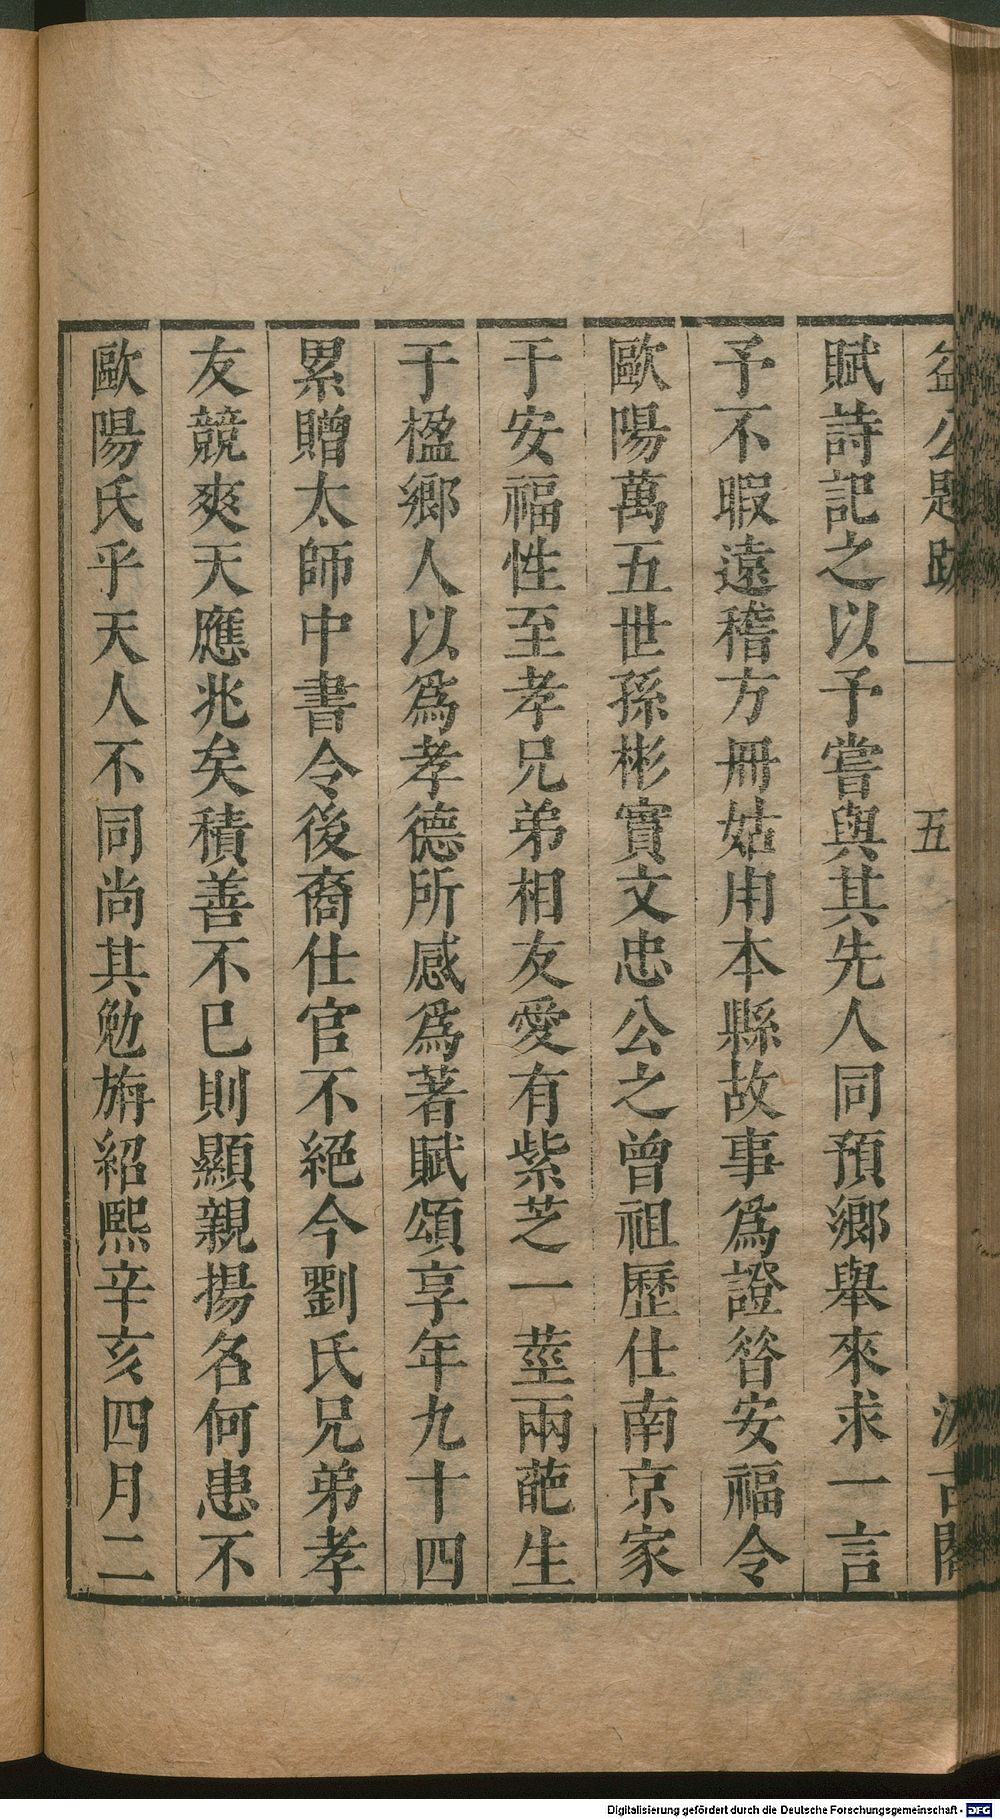 益公題跋 五 汲古閣
賦詩記之以予嘗與其先人同預鄉舉來求一言
予不暇遠稽方冊姑用本縣故事爲證昝安福令
歐陽萬五世孫彬實文忠公之曾祖歷仕南京家
于安福性至孝兄弟相友愛有紫芝一莖兩葩生
于楹鄉人以爲孝德所感爲著賦頌享年九十四
累贈太師中書令後裔仕官不絕今劉氏兄弟孝
友競爽天應兆矣積善不已則顯親揚名何患不
歐陽氏乎天人不同尚其勉旃紹熙辛亥四月二
Digitalisierung gefördert durch die Deutsche Forschungsgemeinschaft - DFG